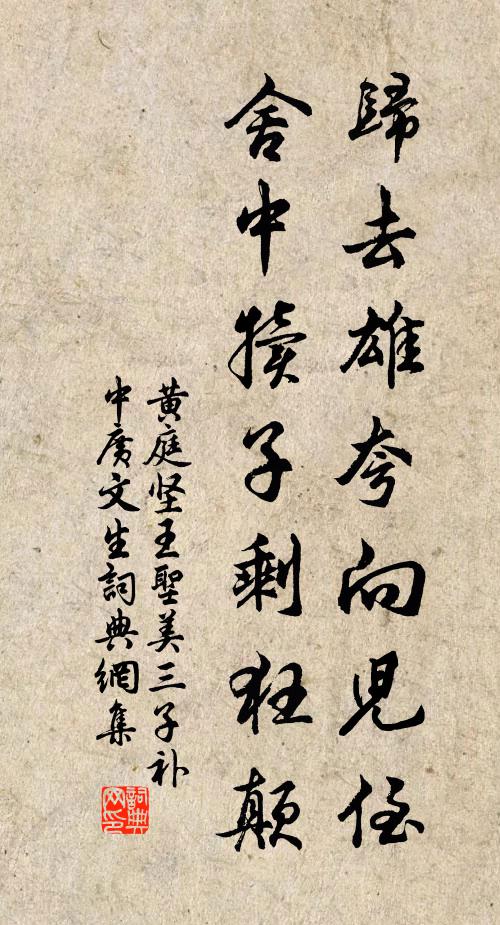 歸去雄夸向児侄
舍中犢子剩狂顛
黄庭坚王聖美三子补
中廣文生詞典網集
詞典网印